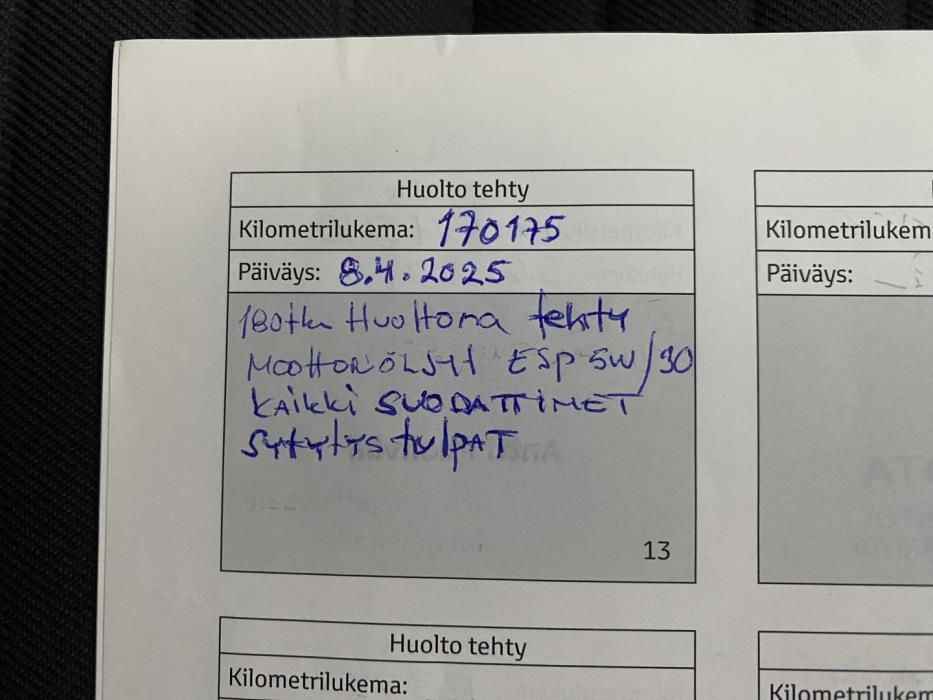 Huolto tehty
Kilometrilukema: 170175
Päiväys: 8.4.2025
180tkm Huoltona tehty
MOOTTORiÖLJYt ESP 5W/30
KAikki SUODATTIMET
SytytystulpAT
13
Kilometrilukem
Päiväys:
Huolto tehty
Kilometrilukema:
Kilometrilukem